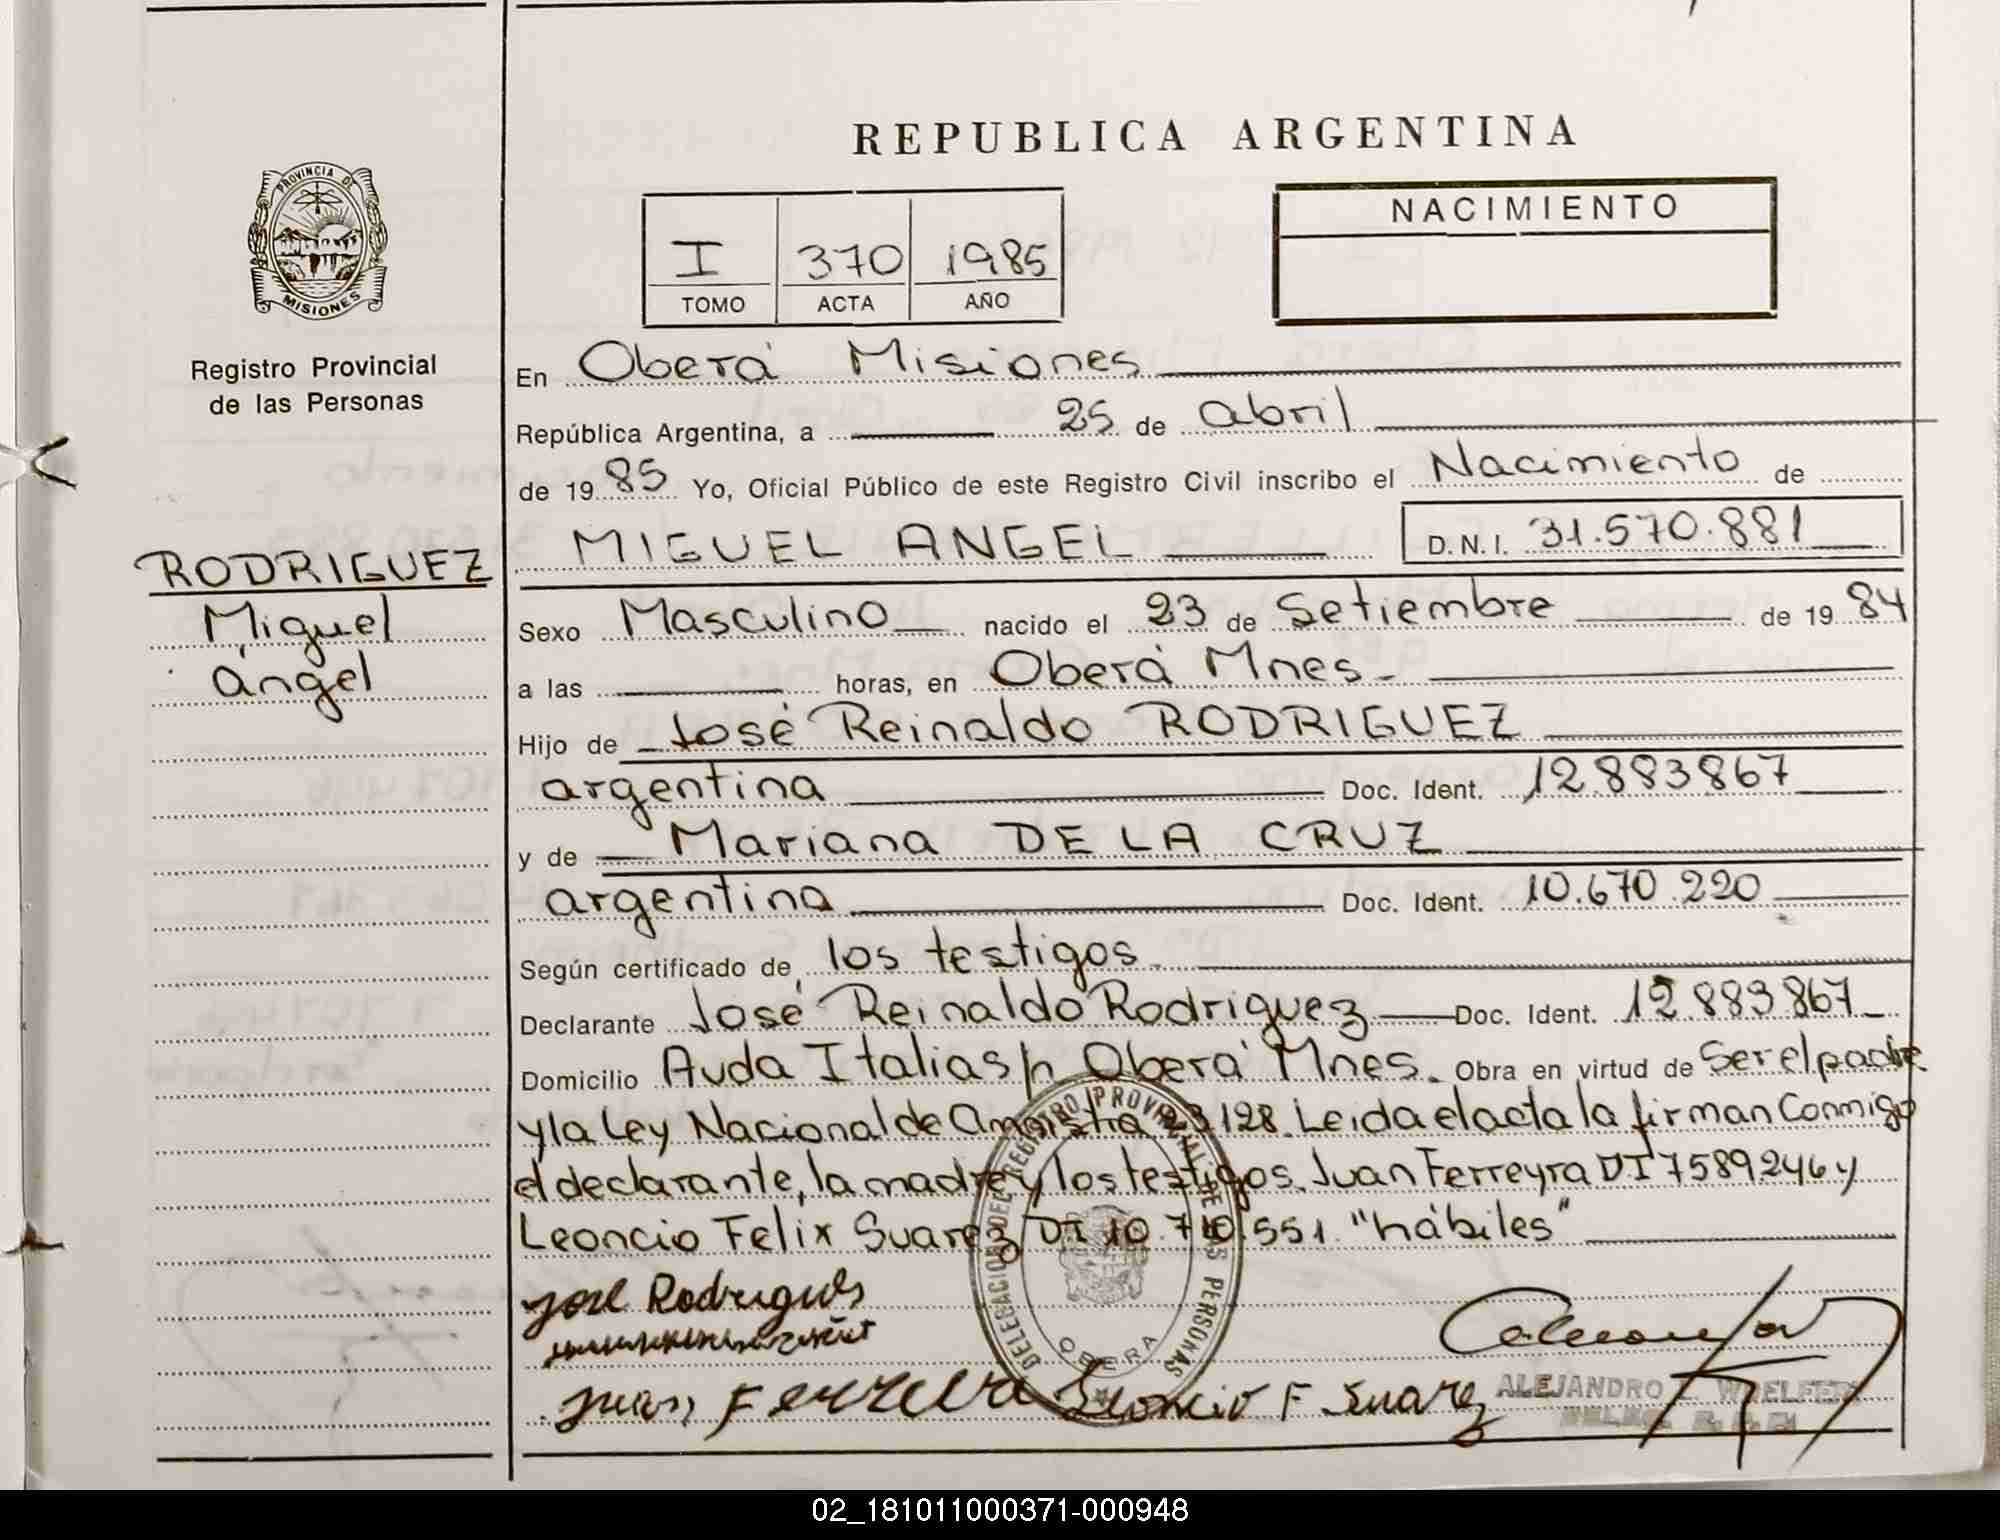 REPUBLICA ARGENTINA
PROVINCIA DE
MISIONES
Registro Provincial
de las Personas
I 370 1985
TOMO ACTA AÑO
NACIMIENTO
En Oberá Misiones
República Argentina, a 25 de abril
de 1985 Yo, Oficial Público de este Registro Civil inscribo el Nacimiento de
RODRIGUEZ
Miguel
Angel
MIGUEL ANGEL D.N.I. 31.570.881
Sexo Masculino nacido el 23 de Setiembre de 1984
a las horas, en Oberá Mnes.
Hijo de José Reinaldo RODRIGUEZ
argentina Doc. Ident. 12.883.867
y de Mariana DE LA CRUZ
argentina Doc. Ident. 10.670.220
Según certificado de los testigos.
Declarante José Reinaldo Rodriguez Doc. Ident. 12.883.867
Domicilio Avda Italia s/n Oberá Mnes. Obra en virtud de Ser el padre
y la Ley Nacional de Amnistia 23128. Leida el acta la firman Conmigo
el declarante, la madre y los testigos. Juan Ferreyra DI 7589.246 y
Leoncio Felix Suarez DI 10.710.551. "hábiles"
DELEGACION DEL REGISTRO PROVINCIAL DE LAS PERSONAS
OBERA
José Rodrigues
Juan Ferreira Leoncio F Suarez
ALEJANDRO WOELFERT
02_181011000371-000948